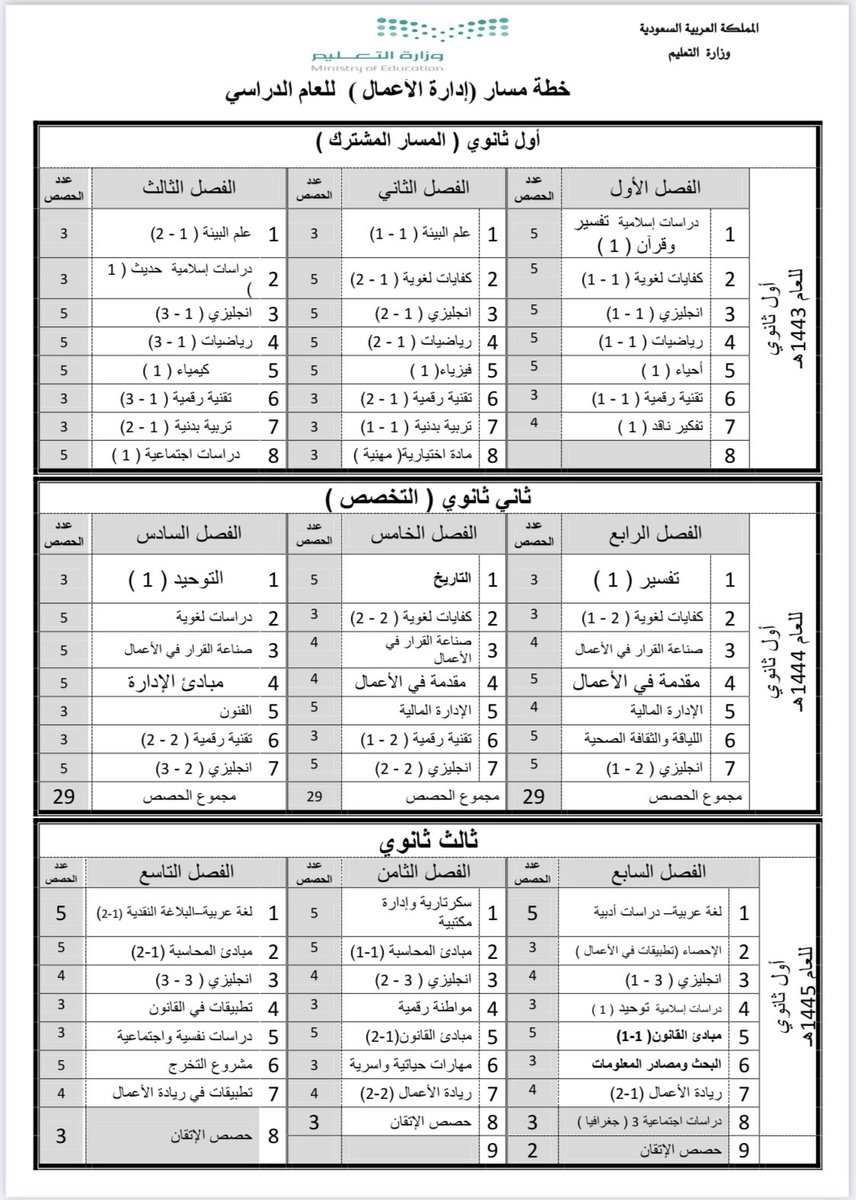 المملكة العربية السعودية
وزارة التعليم
وزارة التعليم
Ministry of Education
خطة مسار (إدارة الأعمال ) للعام الدراسي
أول ثانوي ( المسار المشترك )
للعام 1443هـ
أول ثانوي
الفصل الأول عدد الحصص الفصل الثاني عدد الحصص الفصل الثالث عدد الحصص
1 دراسات إسلامية تفسير وقرآن ( 1 ) 5 1 علم البيئة ( 1 - 1) 3 1 علم البيئة ( 1 - 2) 3
2 كفايات لغوية ( 1 - 1) 5 2 كفايات لغوية ( 1 - 2) 5 2 دراسات إسلامية حديث ( 1 ) 3
3 انجليزي ( 1 - 1) 5 3 انجليزي ( 1 - 2) 5 3 انجليزي ( 1 - 3) 5
4 رياضيات ( 1 - 1) 5 4 رياضيات ( 1 - 2) 5 4 رياضيات ( 1 - 3) 5
5 أحياء ( 1 ) 5 5 فيزياء( 1 ) 5 5 كيمياء ( 1 ) 5
6 تقنية رقمية ( 1 - 1) 3 6 تقنية رقمية ( 1 - 2) 3 6 تقنية رقمية ( 1 - 3) 3
7 تفكير ناقد ( 1 ) 4 7 تربية بدنية ( 1 - 1) 3 7 تربية بدنية ( 1 - 2) 3
8 8 مادة اختيارية( مهنية ) 3 8 دراسات اجتماعية ( 1 ) 5
ثاني ثانوي ( التخصص )
للعام 1444هـ
أول ثانوي
الفصل الرابع عدد الحصص الفصل الخامس عدد الحصص الفصل السادس عدد الحصص
1 تفسير ( 1 ) 3 1 التاريخ 5 1 التوحيد ( 1 ) 3
2 كفايات لغوية ( 2 - 1) 3 2 كفايات لغوية ( 2 - 2) 3 2 دراسات لغوية 5
3 صناعة القرار في الأعمال 4 3 صناعة القرار في الأعمال 4 3 صناعة القرار في الأعمال 5
4 مقدمة في الأعمال 5 4 مقدمة في الأعمال 4 4 مبادئ الإدارة 5
5 الإدارة المالية 4 5 الإدارة المالية 5 5 الفنون 3
6 اللياقة والثقافة الصحية 5 6 تقنية رقمية ( 2 - 1) 3 6 تقنية رقمية ( 2 - 2) 3
7 انجليزي ( 2 - 1) 5 7 انجليزي ( 2 - 2) 5 7 انجليزي ( 2 - 3) 5
مجموع الحصص 29 مجموع الحصص 29 مجموع الحصص 29
ثالث ثانوي
للعام 1445هـ
أول ثانوي
الفصل السابع عدد الحصص الفصل الثامن عدد الحصص الفصل التاسع عدد الحصص
1 لغة عربية– دراسات أدبية 5 1 سكرتارية وإدارة مكتبية 5 1 لغة عربية–البلاغة النقدية (1-2) 5
2 الإحصاء (تطبيقات في الأعمال ) 3 2 مبادئ المحاسبة (1-1) 5 2 مبادئ المحاسبة (1-2) 5
3 انجليزي ( 3 - 1) 4 3 انجليزي ( 3 - 2) 4 3 انجليزي ( 3 - 3) 4
4 دراسات إسلامية توحيد ( 1 ) 3 4 مواطنة رقمية 3 4 تطبيقات في القانون 3
5 مبادئ القانون( 1-1) 5 5 مبادئ القانون(1-2) 5 5 دراسات نفسية واجتماعية 3
6 البحث ومصادر المعلومات 3 6 مهارات حياتية واسرية 3 6 مشروع التخرج 5
7 ريادة الأعمال (1-2) 4 7 ريادة الأعمال (2-2) 4 7 تطبيقات في ريادة الأعمال 4
8 دراسات اجتماعية 3 ( جغرافيا ) 3 8 حصص الإتقان 3 8 حصص الإتقان 3
9 حصص الإتقان 2 9